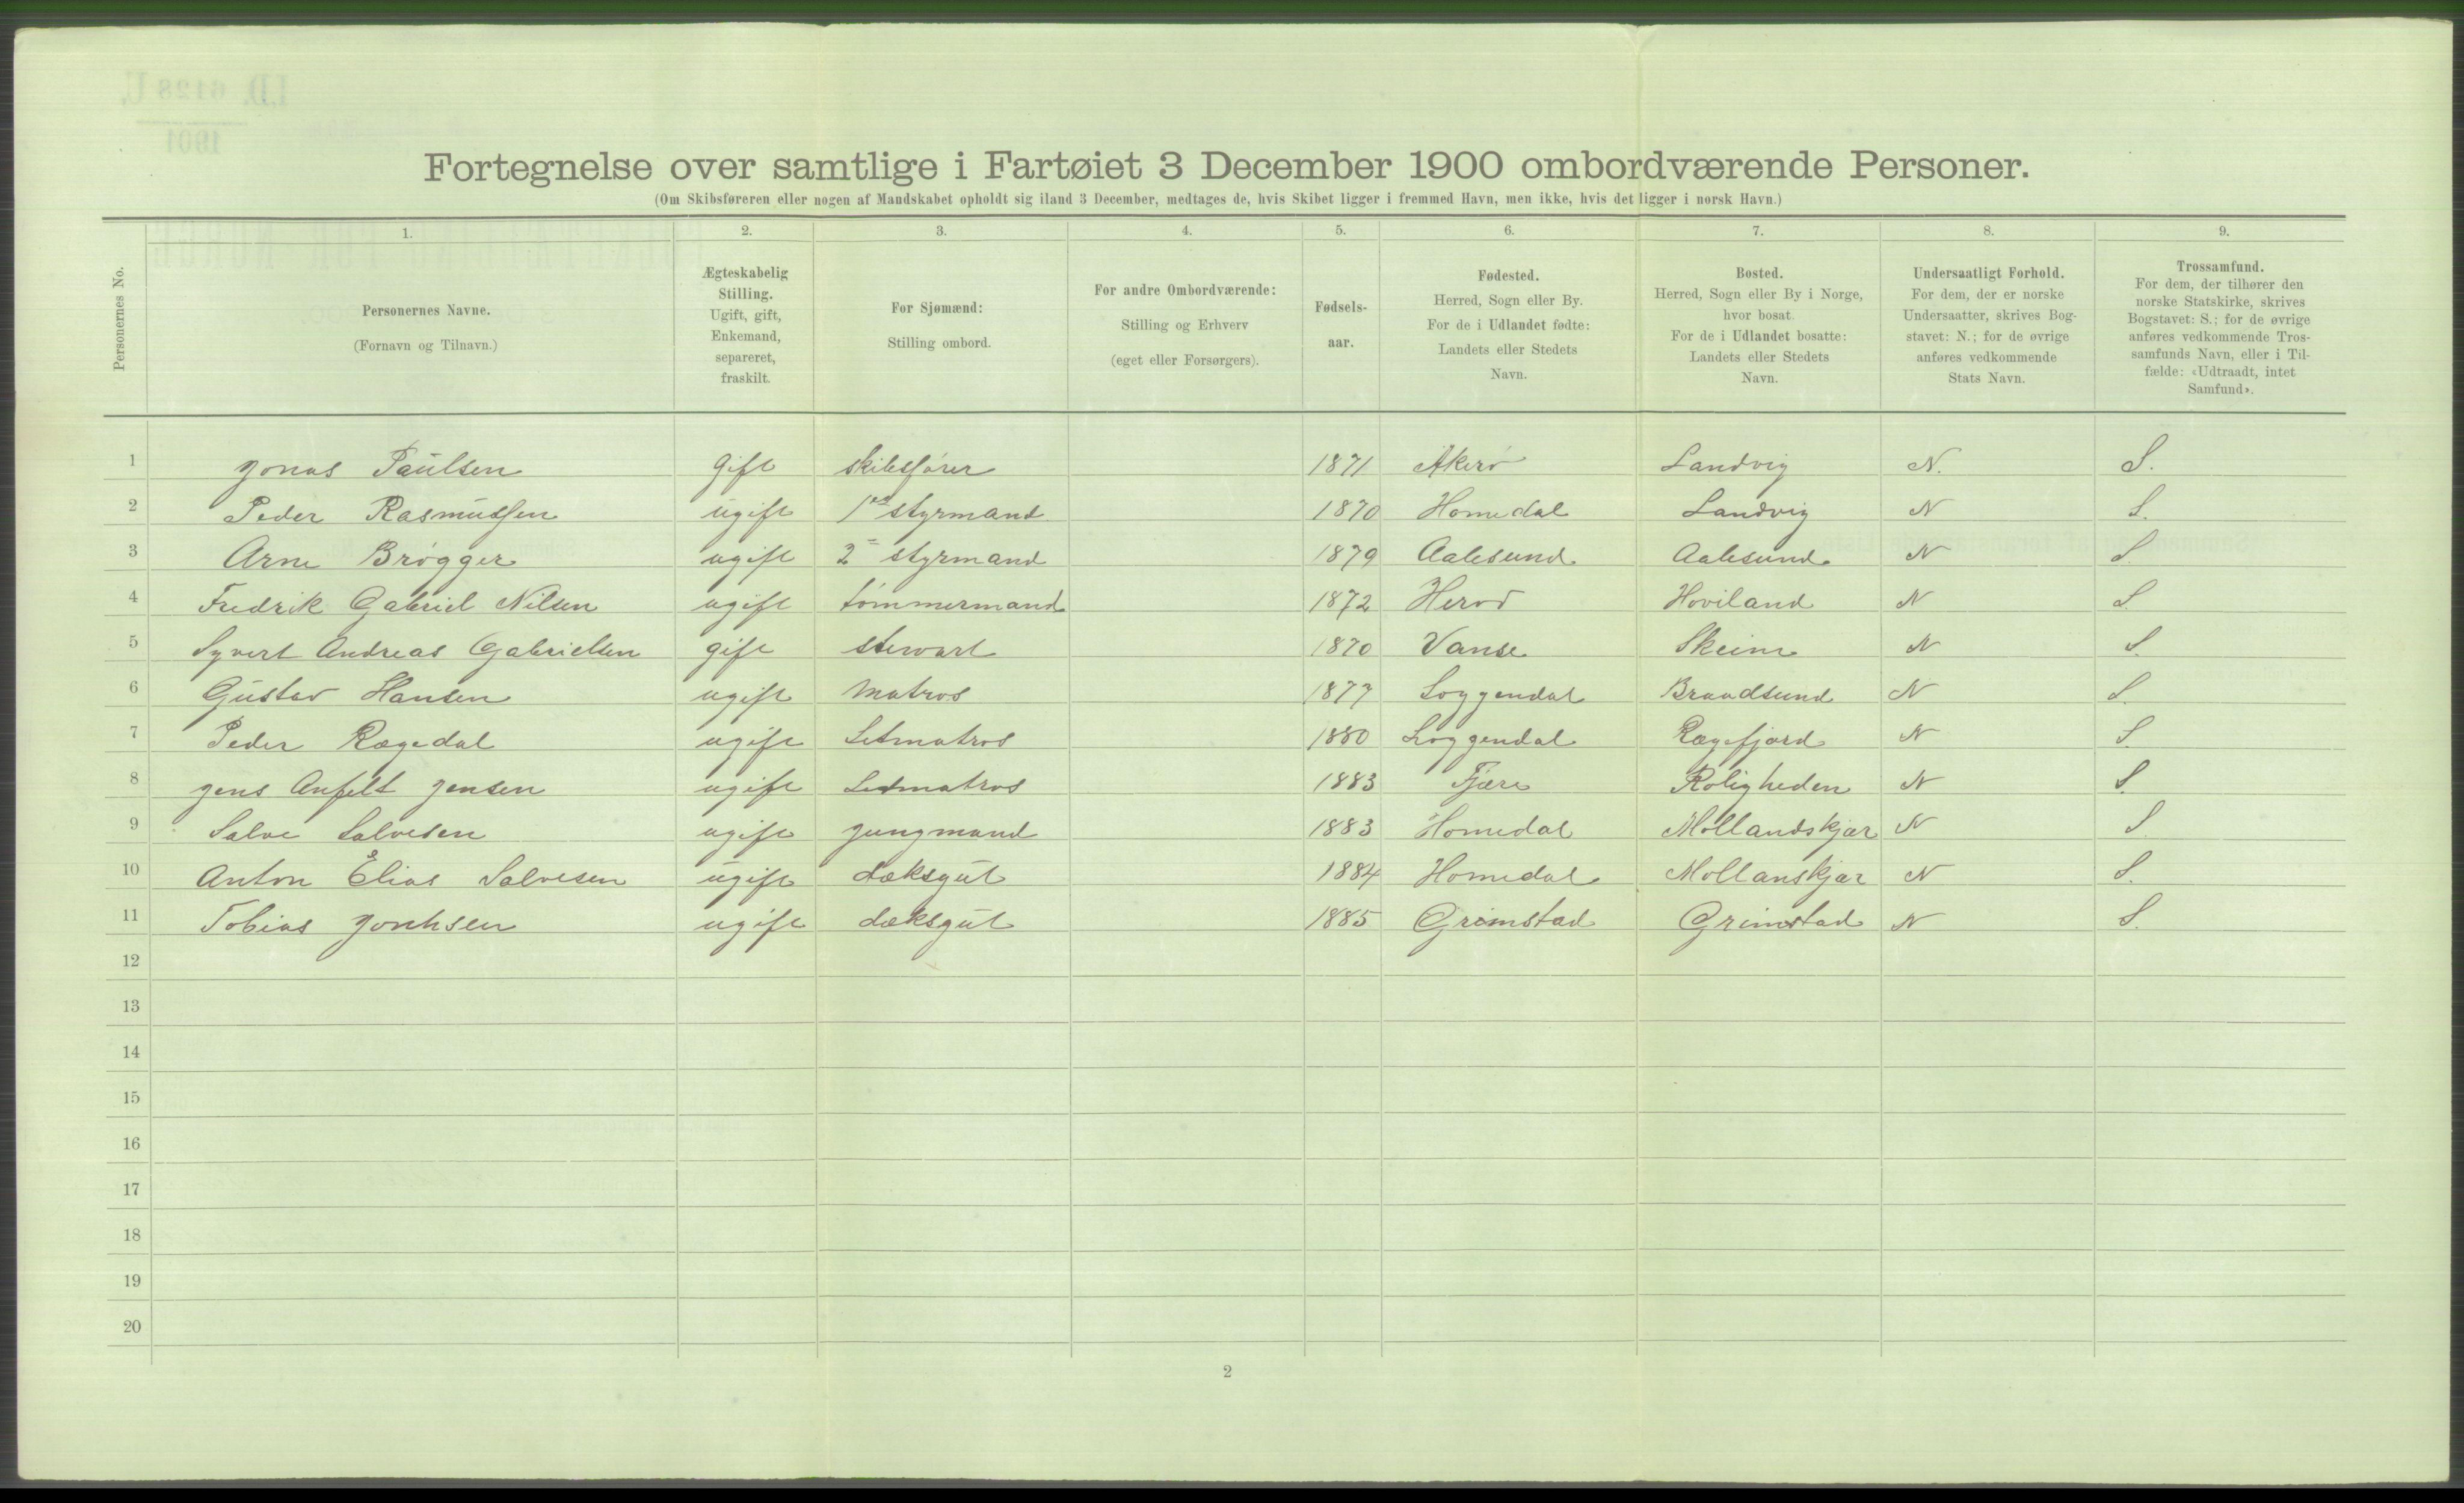 Fortegnelse over samtlige i Fartøiet 3 December 1900 ombordværende Personer.
(Om Skibsføreren eller nogen af Mandskabet opholdt sig iland 3 December, medtages de, hvis Skibet ligger i fremmed Havn, men ikke, hvis det ligger i norsk Havn.)
1. 2. 3. 4. 5. 6. 7. 8. 9.
Personernes No.
Personernes Navne.
(Fornavn og Tilnavn.)
Ægteskabelig
Stilling.
Ugift, gift,
Enkemand,
separeret,
fraskilt.
For Sjømænd:
Stilling ombord.
For andre Ombordværende:
Stilling og Erhverv
(eget eller Forsørgers).
Fødsels-
aar.
Fødested.
Herred, Sogn eller By.
For de i Udlandet fødte:
Landets eller Stedets
Navn.
Bosted.
Herred, Sogn eller By i Norge,
hvor bosat.
For de i Udlandet bosatte:
Landets eller Stedets
Navn.
Undersaatligt Forhold.
For dem, der er norske
Undersaatter, skrives Bog-
stavet: N.; for de øvrige
anføres vedkommende
Stats Navn.
Trossamfund.
For dem, der tilhører den
norske Statskirke, skrives
Bogstavet: S.; for de øvrige
anføres vedkommende Tros-
samfunds Navn, eller i Til-
fælde: «Udtraadt, intet
Samfund».
1 Jonas Paulsen gift skibsfører 1871 Akerø Landvig N. S.
2 Peder Rasmussen ugift 1ste styrmand 1870 Homedal Landvig N S.
3 Arne Brøgger ugift 2 styrmand 1879 Aalesund Aalesund N S
4 Fredrik Gabriel Nilsen ugift tømmermand 1872 Hoviland N S
5 Syvert Andreas Gabrielsen gift stewart 1870 Vanse Skeime N S.
6 Gustav Hansen ugift Matros 1877 Soggendal Braadsund N S.
7 Peder Rægedal ugift Letmatros 1880 Soggendal Rægefjord N S.
8 Jens Anfelt Jensen ugift Letmatros 1883 Fjære Roligheden N S.
9 Salve Salvesen ugift Jungmand 1883 Homedal Mollandskjær N S
10 Anton Elias Salvesen ugift dæksgut 1884 Homedal Mollanskjær N S.
11 Tobias ugift dæksgut 1885 Grimstad Grimstad N S.
12
13
14
15
16
17
18
19
20
2